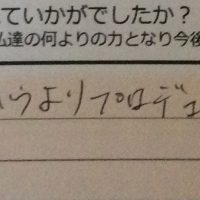 ていかがでしたか？
私達の何よりの力となり今後
うよりプロデュ